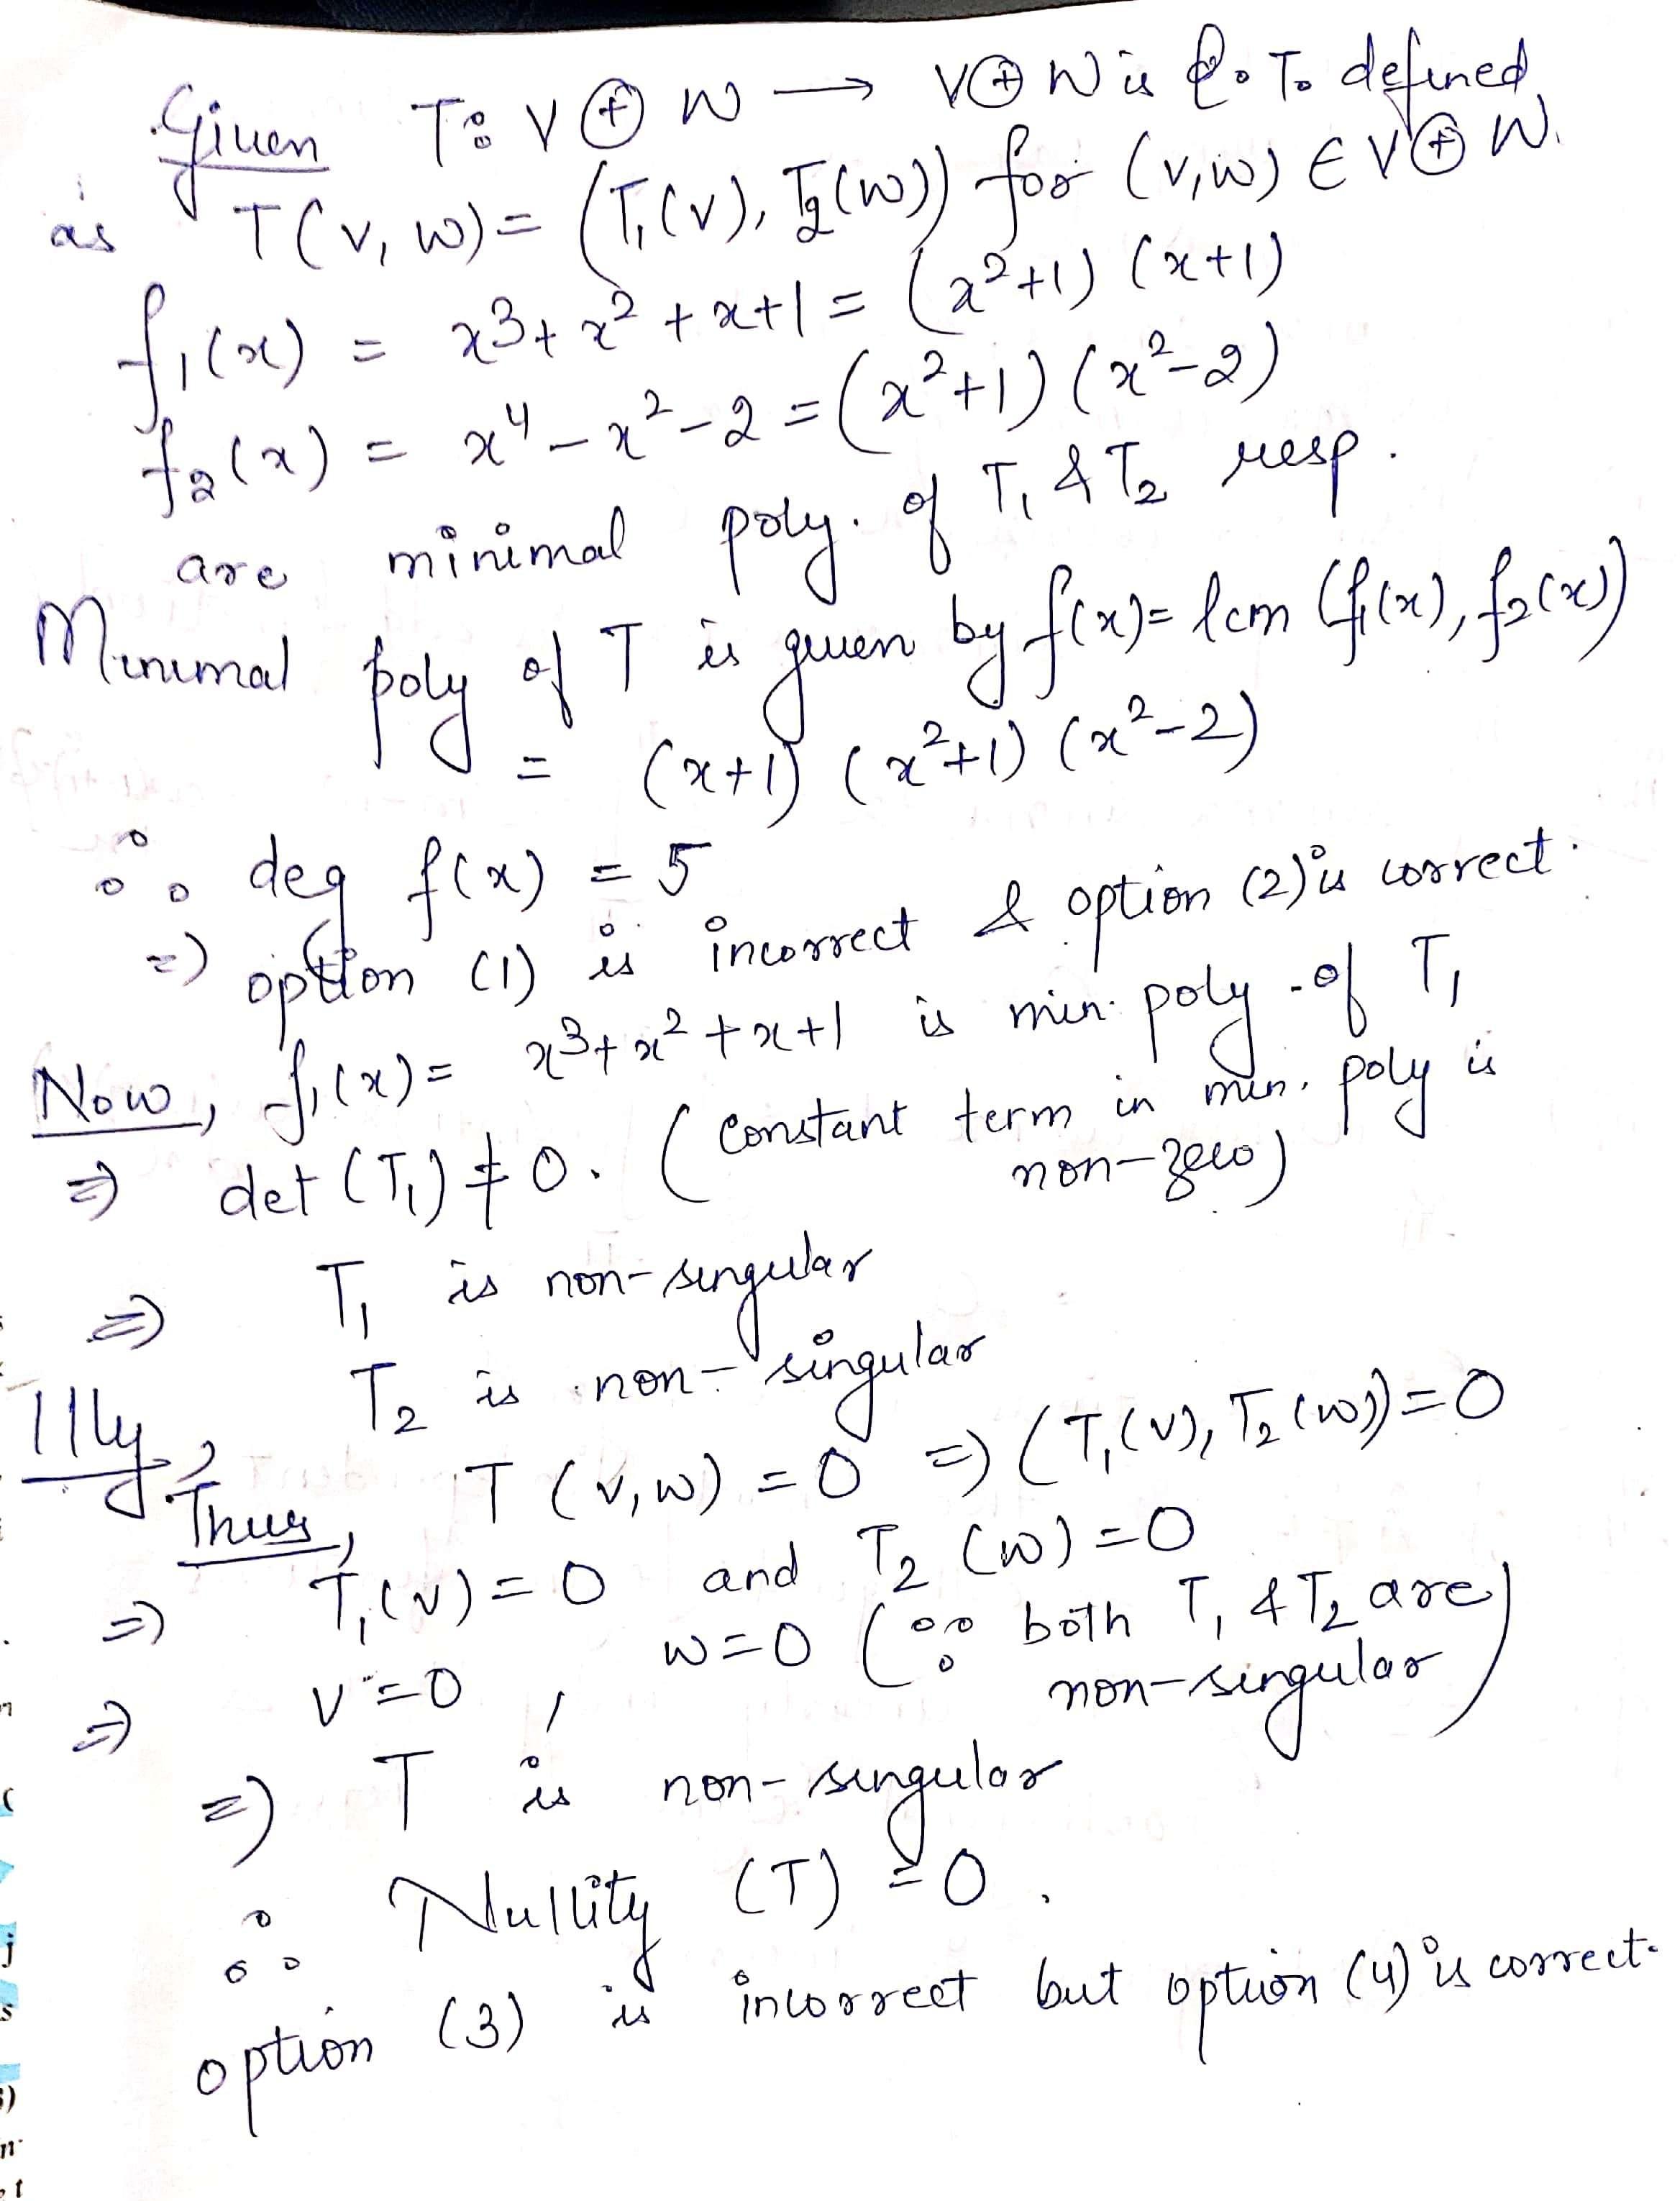 Given T: V ⊕ W → V ⊕ W is L.T. defined
as T(v, w) = (T₁(v), T₂(w)) for (v, w) ∈ V ⊕ W.
f₁(x) = x³ + x² + x + 1 = (x² + 1) (x + 1)
f₂(x) = x⁴ - x² - 2 = (x² + 1) (x² - 2)
are minimal poly. of T₁ & T₂ resp.
Minimal poly of T is given by f(x) = lcm (f₁(x), f₂(x))
= (x + 1) (x² + 1) (x² - 2)
∴ deg f(x) = 5
⇒ option (1) is incorrect & option (2) is correct.
Now, f₁(x) = x³ + x² + x + 1 is min. poly. of T₁
⇒ det (T₁) ≠ 0. (constant term in min. poly is
non-zero)
⇒ T₁ is non-singular
Illy, T₂ is non-singular
Thus, T (v, w) = 0 ⇒ (T₁(v), T₂(w)) = 0
⇒ T₁(v) = 0 and T₂ (w) = 0
⇒ v = 0 , w = 0 (∵ both T₁ & T₂ are
non-singular)
⇒ T is non-singular
∴ Nullity (T) = 0.
option (3) is incorrect but option (4) is correct.